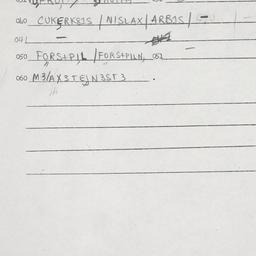 040 CUKERKBIS / NISLAX / ARBIS / -
041 -
050 FORS+PIL / FORS+PILN, 052 -
060 M3/AX3TEIN3ST3 .